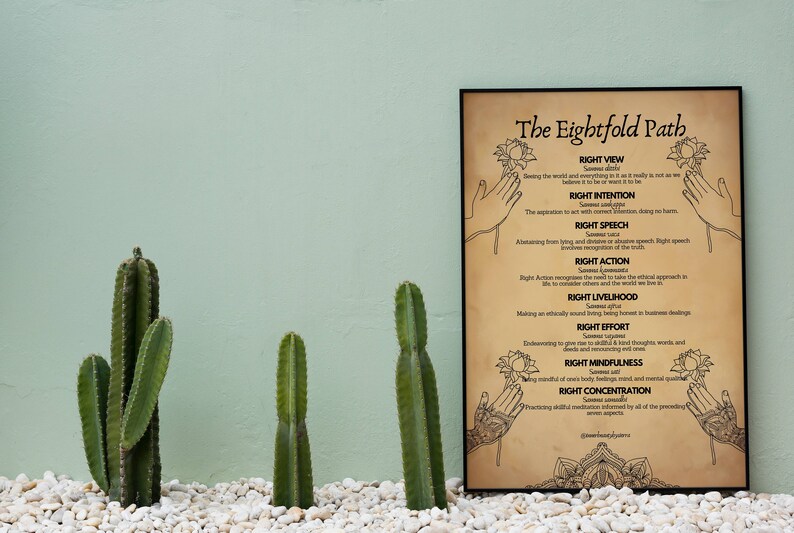 The Eightfold Path
RIGHT VIEW
Samma ditthi
Seeing the world and everything in it as it really is, not as we
believe it to be or want it to be.
RIGHT INTENTION
Samma sankappa
The aspiration to act with correct intention, doing no harm.
RIGHT SPEECH
Samma vaca
Abstaining from lying, and divisive or abusive speech. Right speech
involves recognition of the truth.
RIGHT ACTION
Samma kammanta
Right Action recognises the need to take the ethical approach in
life, to consider others and the world we live in.
RIGHT LIVELIHOOD
Samma ajiva
Making an ethically sound living, being honest in business dealings.
RIGHT EFFORT
Samma vayama
Endeavoring to give rise to skillful & kind thoughts, words, and
deeds and renouncing evil ones.
RIGHT MINDFULNESS
Samma sati
Being mindful of one's body, feelings, mind, and mental qualities.
RIGHT CONCENTRATION
Samma samadhi
Practicing skillful meditation informed by all of the preceding
seven aspects.